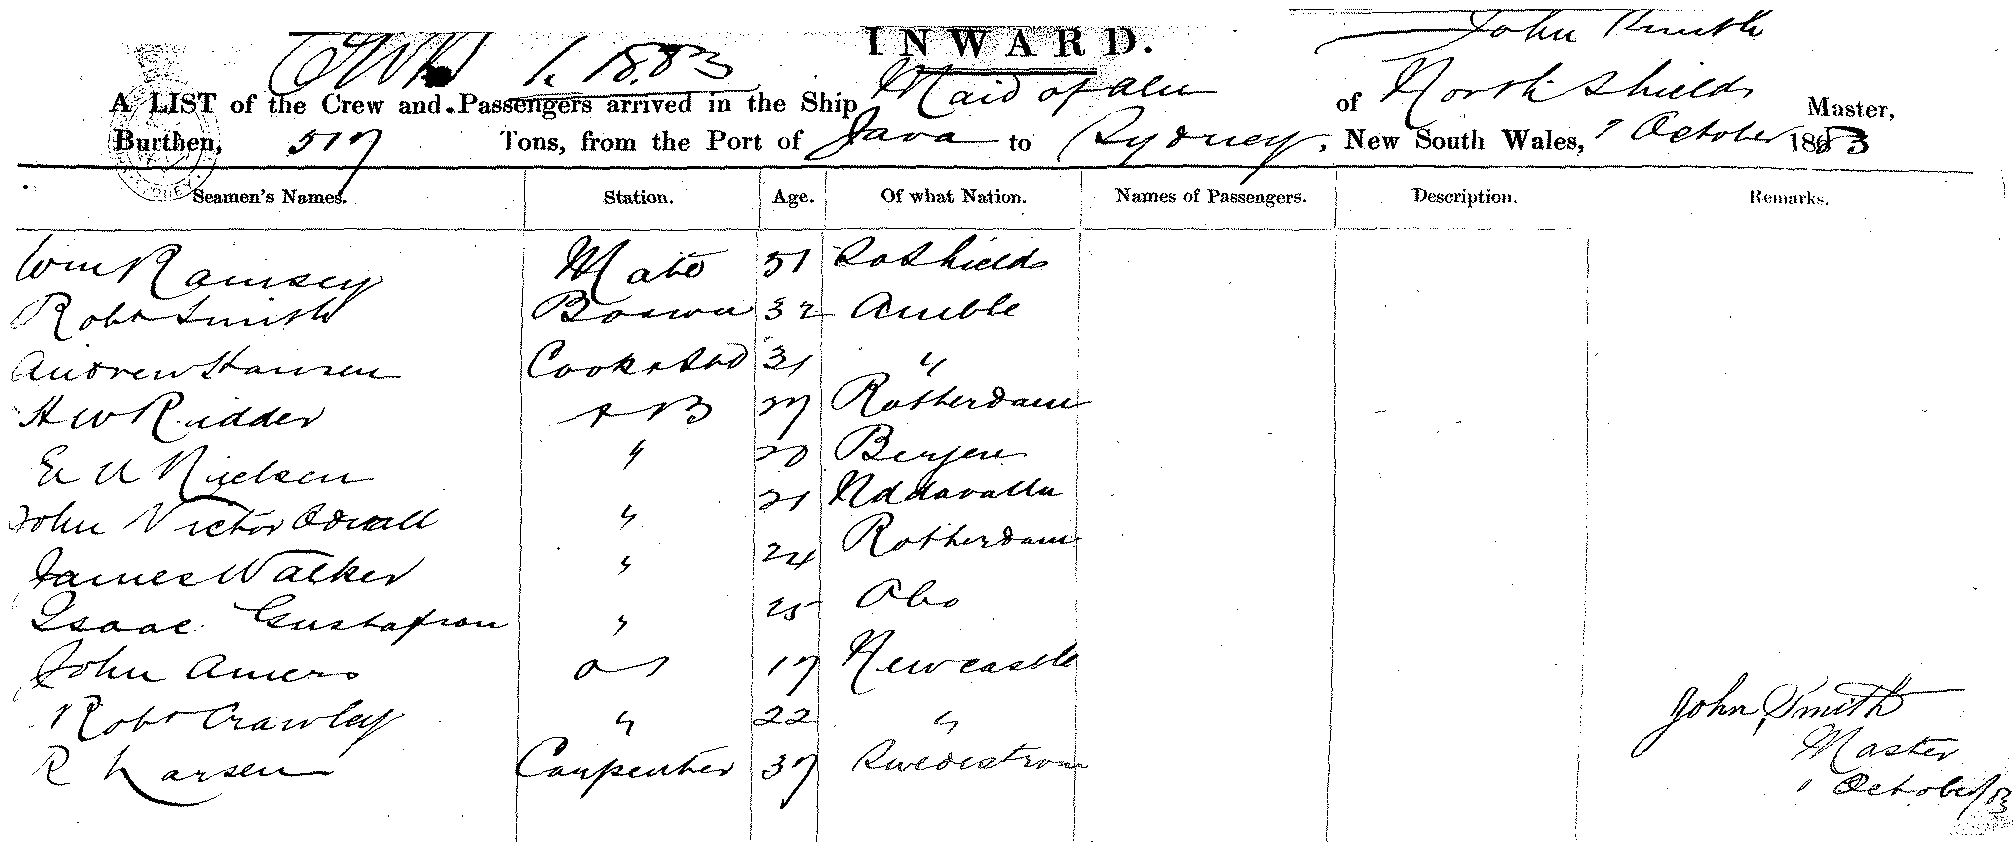 INWARD.
John Smith
1. 1883
A LIST of the Crew and Passengers arrived in the Ship Maid of Aln of North Shields Master,
Burthen, 517 Tons, from the Port of Java to Sydney, New South Wales, October 1883
Seamen's Names. Station. Age. Of what Nation. Names of Passengers. Description. Remarks.
Wm Ramsey Mate 51 So Shields
Robt Smith Boswn 32 Amble
Andrew Hansen Cook & Std 31 "
H W Ridder A B 27 Rotterdam
E A Nielsen " 20 Bergen
John Victor " 21
James Walker " 24 Rotterdam
Isaac Gustafson " 25 Abo
John Amers O S 17 Newcastle
Robt Crawley " 22 "
R Larsen Carpenter 37
John Smith
Master
1 October/83